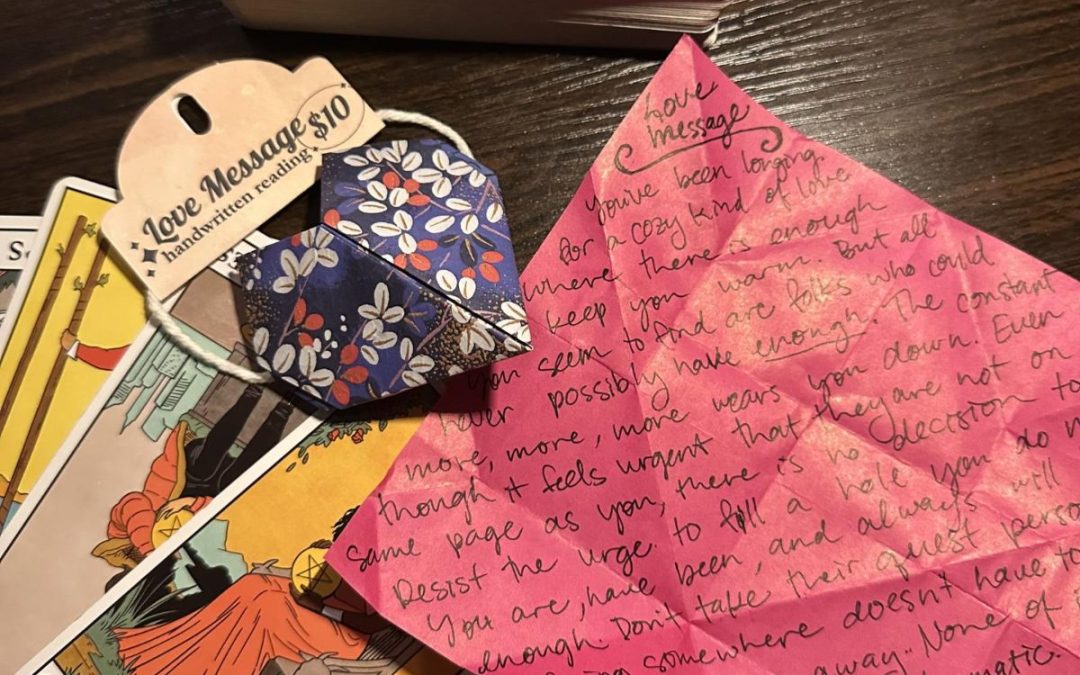 Love Message
$10
handwritten reading
Love
Message
You've been longing
for a cozy kind of love
where there is enough
keep you warm. But all
You seem to find are folks who could
never possibly have enough. The constant
more, more, more wears you down. Even
though it feels urgent that they are not on
same page as you, there is no decision to
Resist the urge to fill a hole you do
You are, have been, and always will
enough. Don't take their quest
somewhere doesn't have to
away. None of